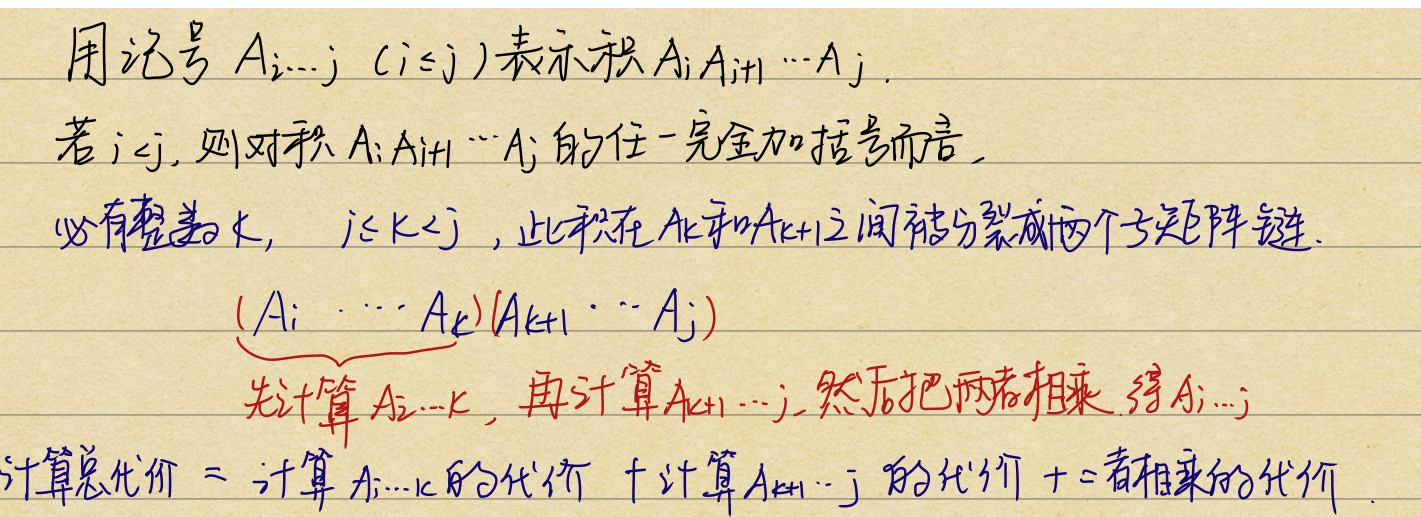 用记号 Ai…j (i≤j)表示积 AiAi+1…Aj.
若 i<j, 则对积 AiAi+1…Aj 的任一完全加括号而言,
必有整数 k, i≤k<j, 此积在 Ak和Ak+1之间被分裂成两个子矩阵链.
(Ai ‥… Ak)(Ak+1 … Aj)
先计算 Ai…k, 再计算 Ak+1…j, 然后把两者相乘 得 Ai…j
计算总代价 = 计算 Ai…k 的代价 + 计算 Ak+1…j 的代价 + 二者相乘的代价.